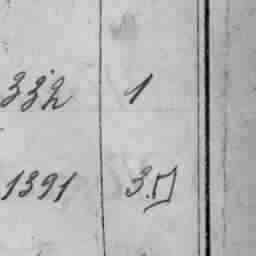 332 1
1391 3.